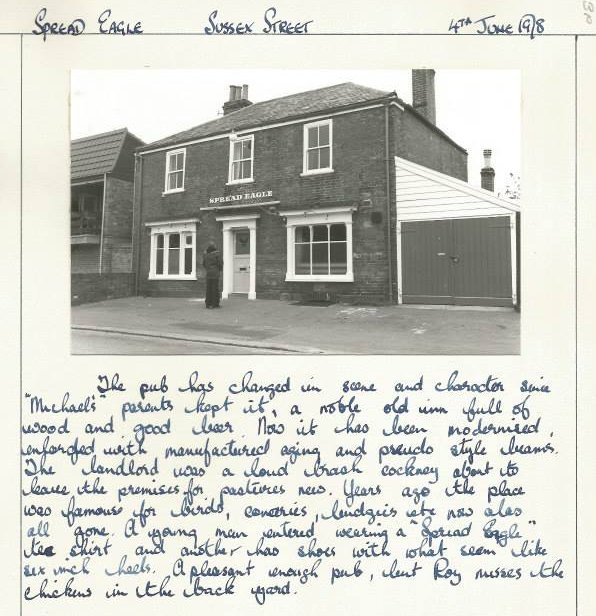 SPREAD EAGLE SUSSEX STREET 4TH JUNE 1978
SPREAD EAGLE
The pub has changed in scene and character since
"Michael's" parents kept it, a noble old inn full of
wood and good beer. Now it has been modernised,
enforged with manufactured aging and pseudo style beams.
The landlord was a loud brash cockney about to
leave the premises for pastures new. Years ago the place
was famous for birds, canaries, budgies etc now alas
all gone. A young man entered wearing a "Spread Eagle"
tee shirt and another has shoes with what seem like
six inch heels. A pleasant enough pub, but Roy misses the
chickens in the back yard.